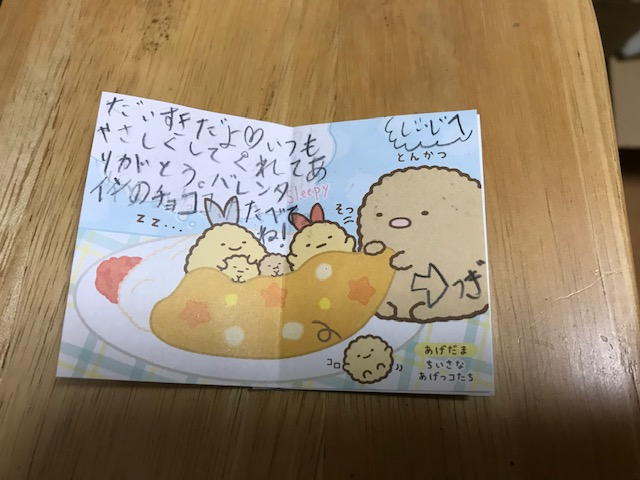 だいすきだよ♡いつも
やさしくしてくれてあ
りがとう。バレンタ
インのチョコたべて
ね!
じいじへ
とんかつ
sleepy
zz...
そっ
つぎ
コロ
あげだま
ちいさな
あげっコたち